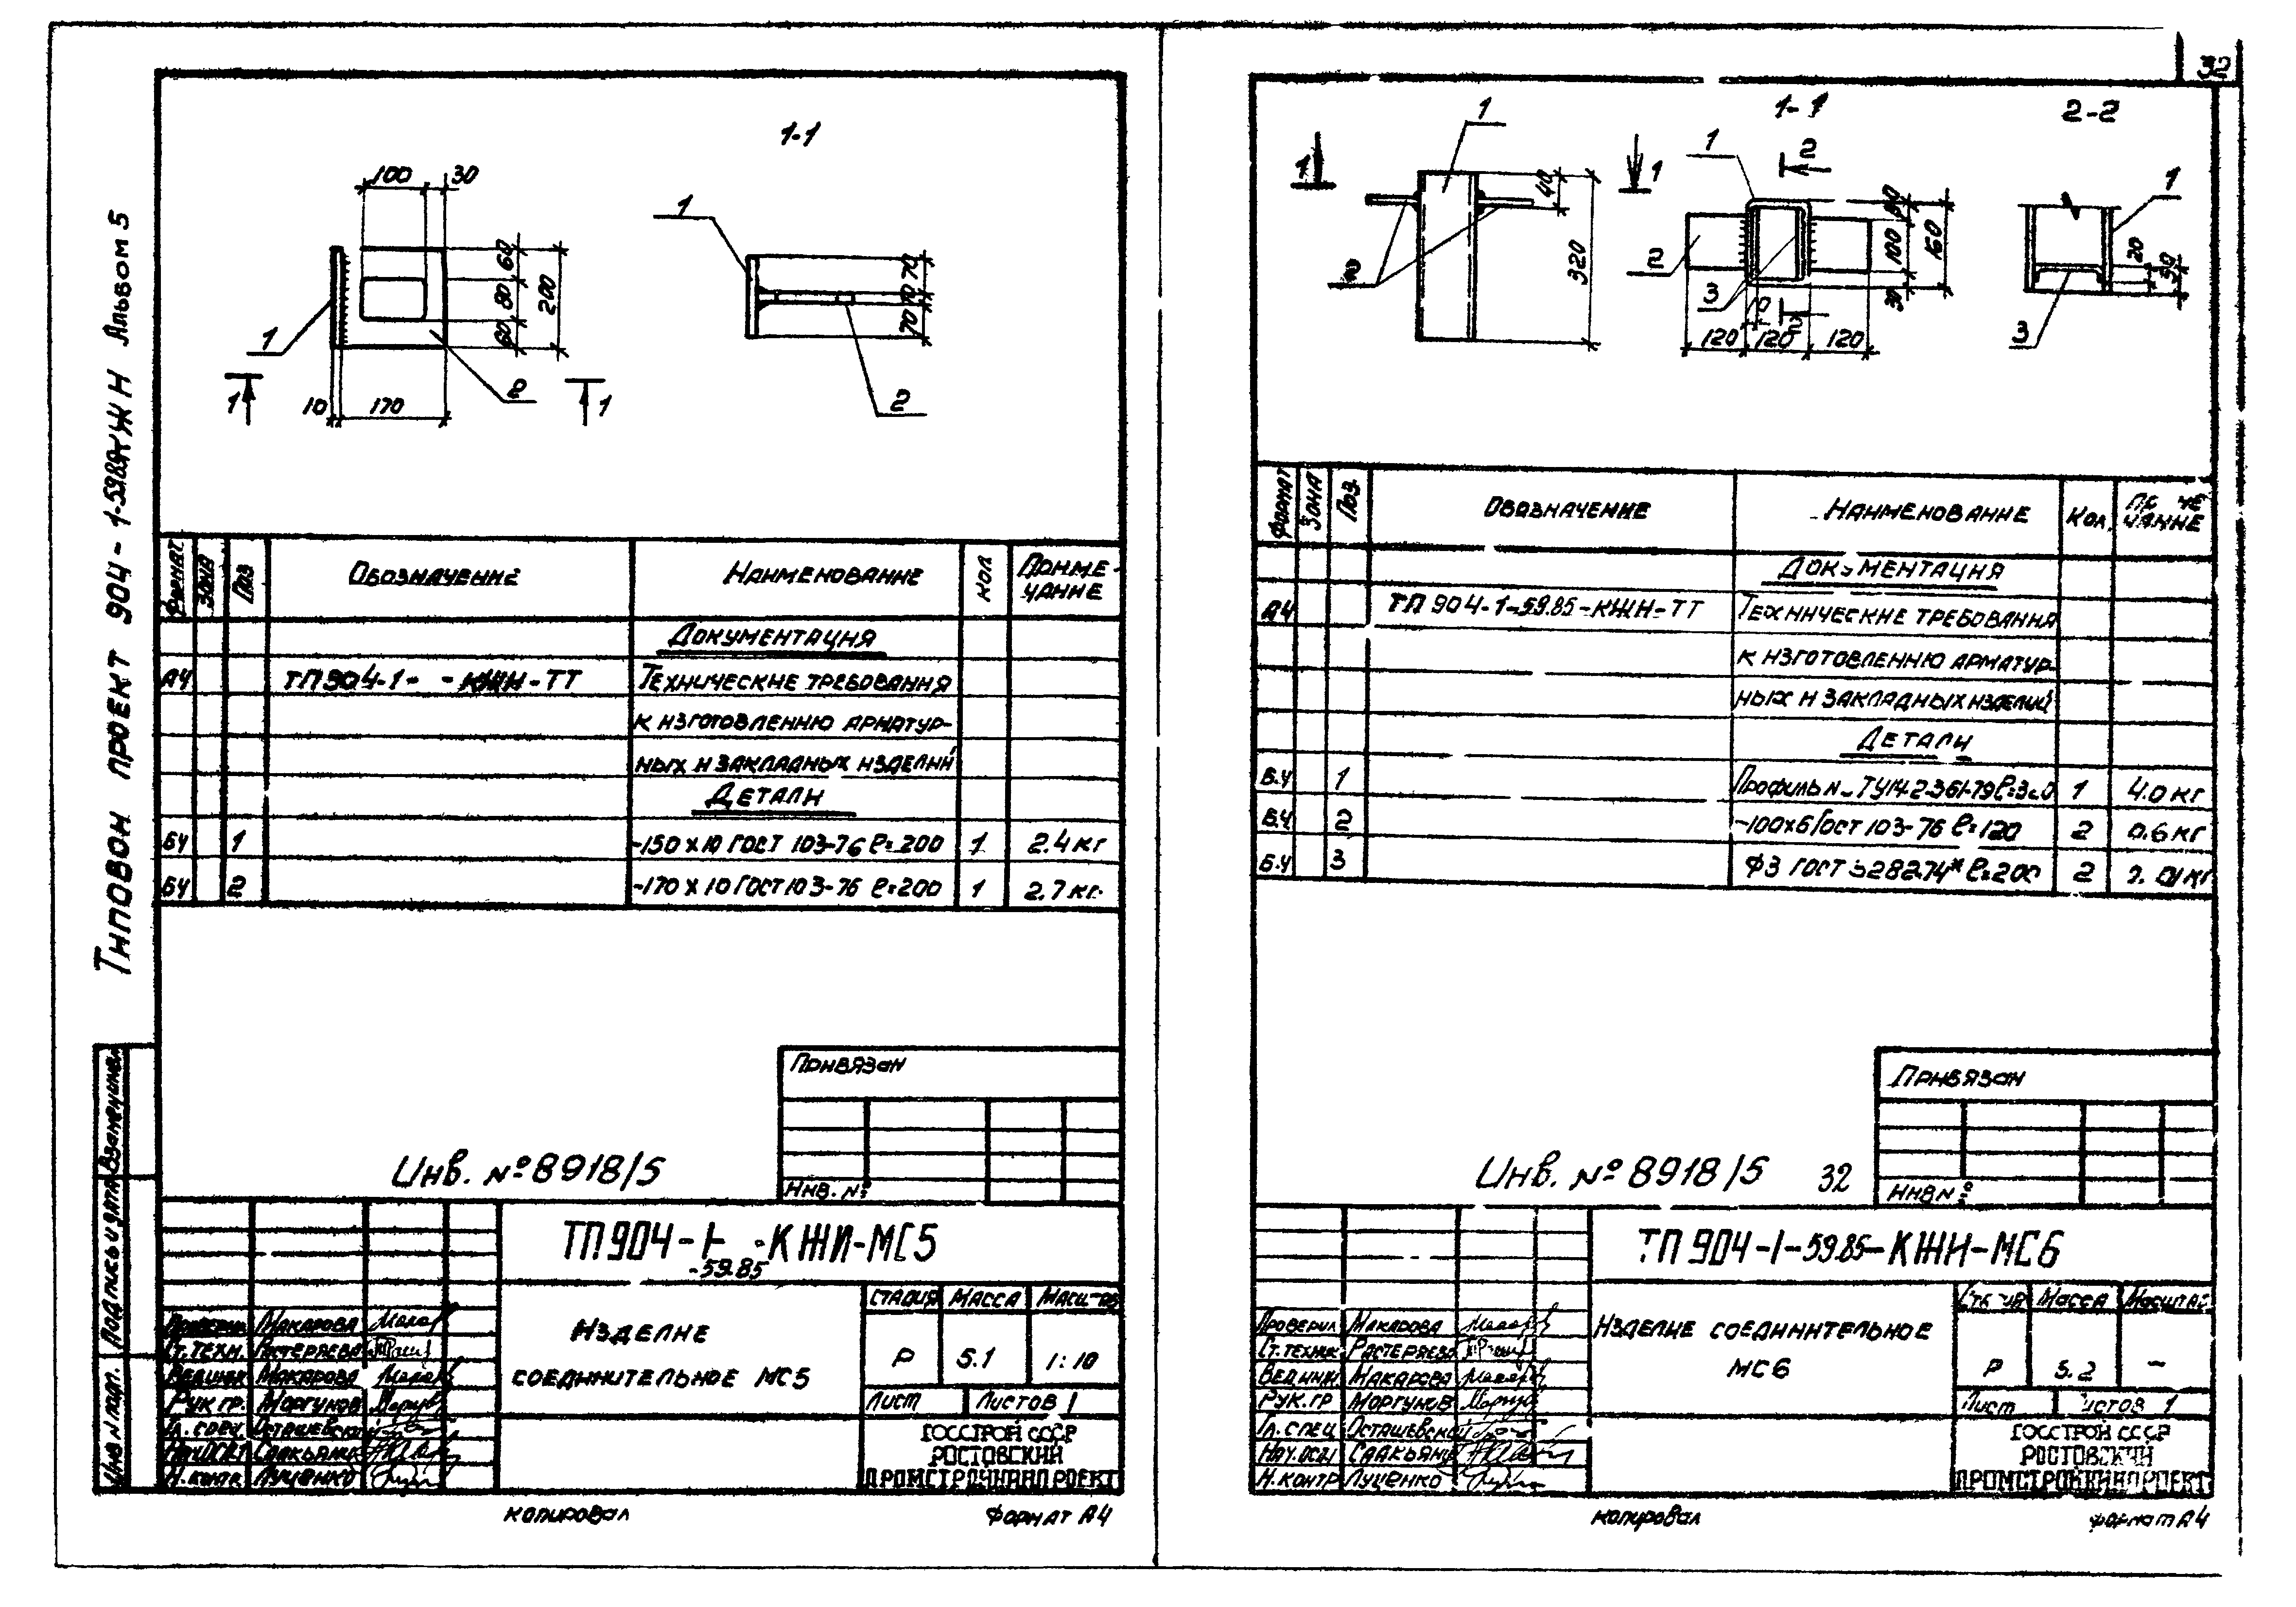 32
Типовой проект 904-1-59.85 КЖИ Альбом 5
1-1
100
30
60
80
60
200
1
2
10
170
1
1
1
70
10
70
2
Формат
Зона
Поз
Обозначение
Наименование
Кол
Приме-
чание
Документация
А4
ТП904-1- -КЖИ-ТТ
Технические требования
к изготовлению арматур-
ных и закладных изделий
Детали
БЧ 1 -150х10 ГОСТ 103-76 ℓ=200 1 2.4кг
БЧ 2 -170х10 ГОСТ 103-76 ℓ=200 1 2.7кг.
Привязан
Инв. №
Инв. №8918/5
ТП904-1- -КЖИ-МС5
-59.85
Изделие
соединительное МС5
Стадия Масса Масштаб
Р 5.1 1:10
Лист Листов 1
ГОССТРОЙ СССР
РОСТОВСКИЙ
ПРОМСТРОЙНИИПРОЕКТ
Проверил Макарова
Ст.техн. Растеряева
Вед.инж Макарова
Рук гр. Моргунов
Гл. спец. Осташевский
Нач.ОСД1 Саакьянц
Н.контр. Луценко
Взам.инв.№
Подпись и дата
Инв № подл.
копировал
Формат А4
1
1
1
2
40
320
1-1
1
2
2
3
10
2
120
120
120
30
100
30
160
2-2
1
20
50
3
Формат
Зона
Поз.
Обозначение
Наименование
Кол.
чание
Документация
А4
ТП 904-1-59.85-КЖИ-ТТ
Технические требования
к изготовлению арматур-
ных и закладных изделий
Детали
Б.Ч 1 Профиль ТУ14-2-361-79 1 4.0кг
Б.Ч 2 -100х6 ГОСТ 103-76 ℓ=120 2 0.6кг
Б.Ч 3 Ф3 ГОСТ ℓ=200 2
Привязан
Инв №
Инв. №8918/5 32
ТП 904-1-59.85-КЖИ-МС6
Изделие соединительное
МС6
Масса Масштаб
Р 5.2 —
Лист Листов 1
ГОССТРОЙ СССР
РОСТОВСКИЙ
ПРОМСТРОЙНИИПРОЕКТ
Проверил Макарова
Ст.техник Растеряева
Вед.инж Макарова
Рук.гр Моргунов
Гл.спец Осташевский
Нач.ОСД1 Саакьянц
Н.контр Луценко
копировал
формат А4